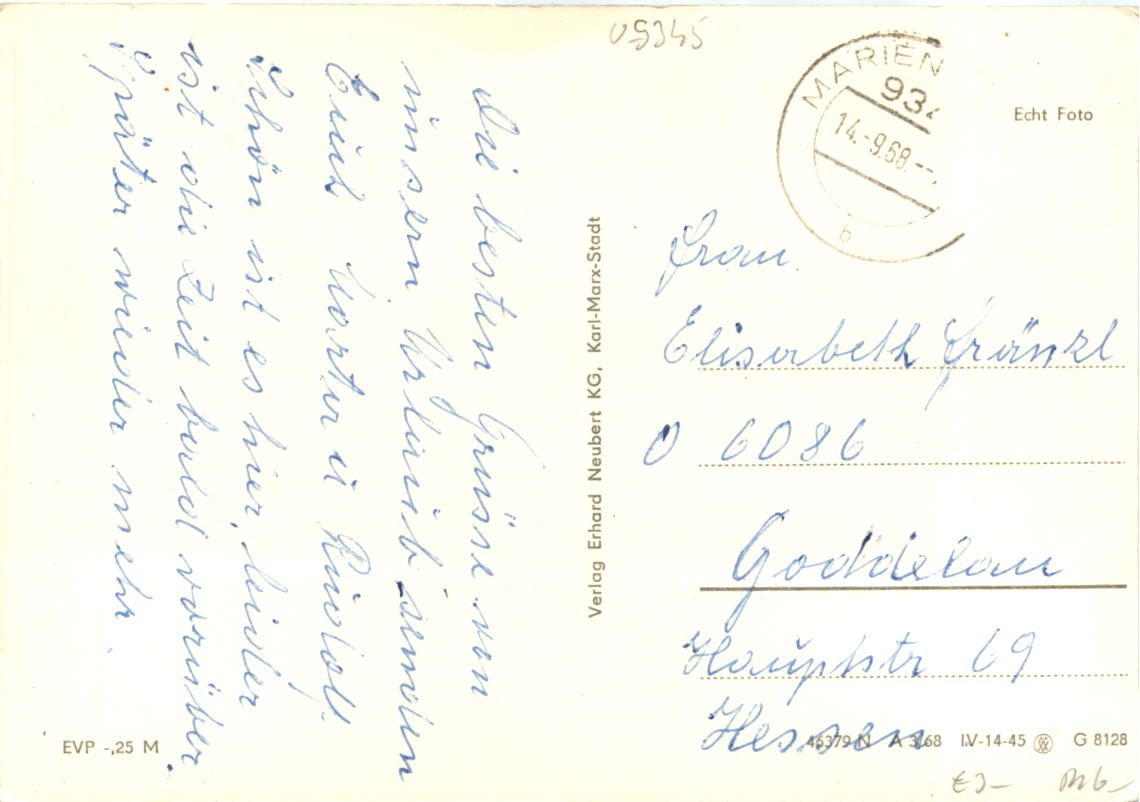 Die besten Grüsse von
unsern Urlaub senden
Euch u Rudolf.
Schön ist es hier, leider
ist die Zeit bald vorüber.
Später wieder mehr.
Verlag Erhard Neubert KG, Karl-Marx-Stadt
05345
MARIEN
14.-9.68.--
b
Echt Foto
Frau
Elisabeth Fränzl
6086
Goddelau
Hauptstr 69
Hessen
EVP -,25 M
46379 N A 3/68 IV-14-45 G 8128